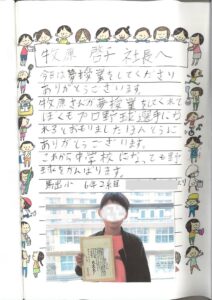 牧原 啓子 社長へ
今日は夢授業をしてくださり
ありがとうございます。
牧原さんが夢授業をしてくれて
ぼくもプロ野球選手になれ
れるとおもいましたほんとうに
ありがとうございます。
これから中学校になっても野
きゅうがんばります。
6年2組